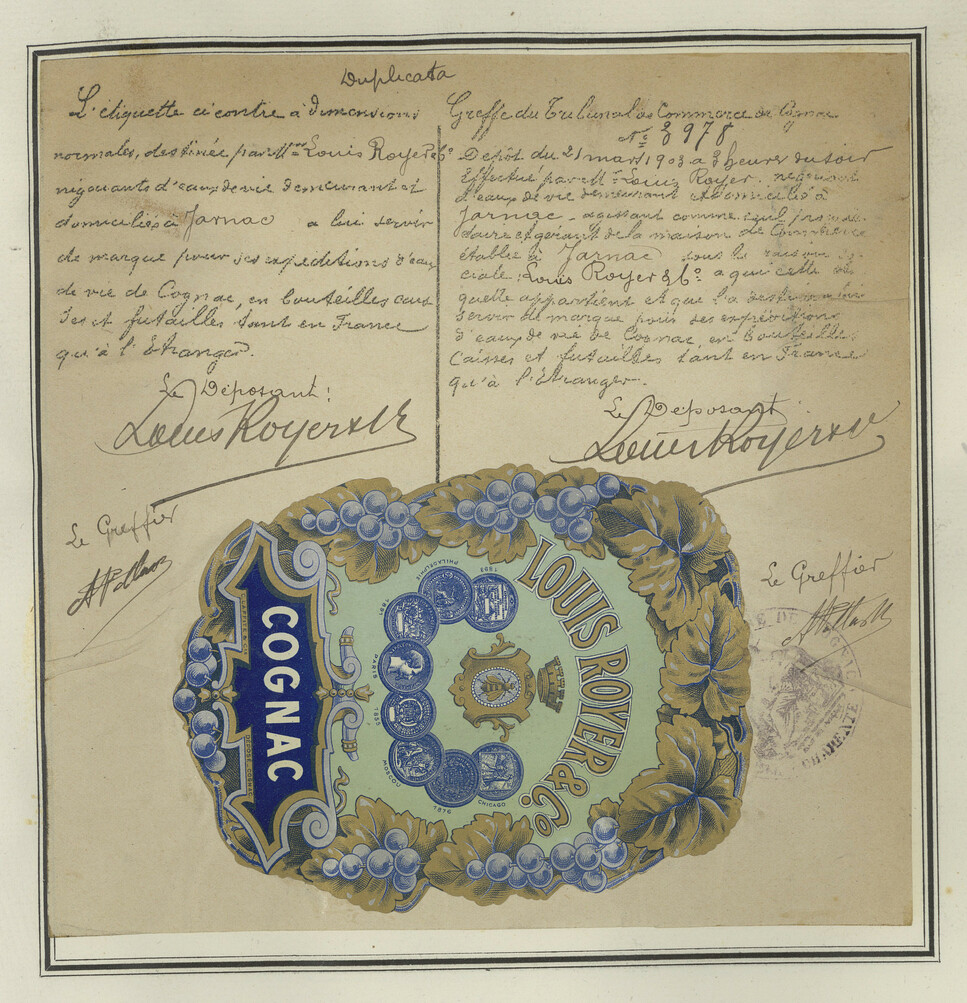 Duplicata
L'étiquette ci contre à dimensions
normales, destinée par Mrs Louis Royer & Co
négociants d'eaux de vie demeurant et
domiciliés à Jarnac a lui servir
de marque pour ses expéditions d'eaux
de vie de Cognac, en bouteilles cais
ses et futailles, tant en France
qu'à l'Etranger.
Le Déposant:
Louis Royer & Co
Le Greffier
Greffe du Tribunal de Commerce de Cognac
No 3978
Dépôt du 21 mars 1903 a 3 heures du soir
Effectué par Mr Louis Royer, négociant
d'eaux de vie demeurant et domicilié à
Jarnac - agissant comme seul
et gérant de la maison de Commerce
établie à Jarnac sous la raison so
ciale: Louis Royer & Co a qui cette éti
quette appartient et que l'a destinée a lui
servir de marque pour ses expéditions
d'eaux de vie de Cognac, en bouteilles
Caisses et futailles tant en France
qu'à l'Etranger.
Le Déposant
Louis Royer & Co
Le Greffier
LOUIS ROYER & Co.
PHILADELPHIE
1893
1891
PARIS
1855
MOSCOU
1876
CHICAGO
COGNAC
DEPOSÉ. COGNAC
CHARENTE